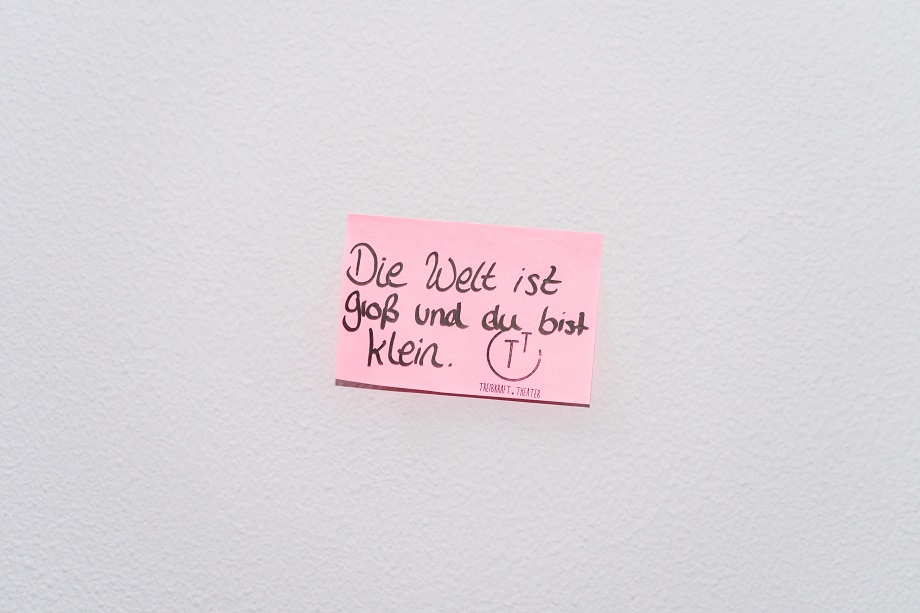 Die Welt ist
groß und du bist
klein.
TT
TREIBKRAFT.THEATER